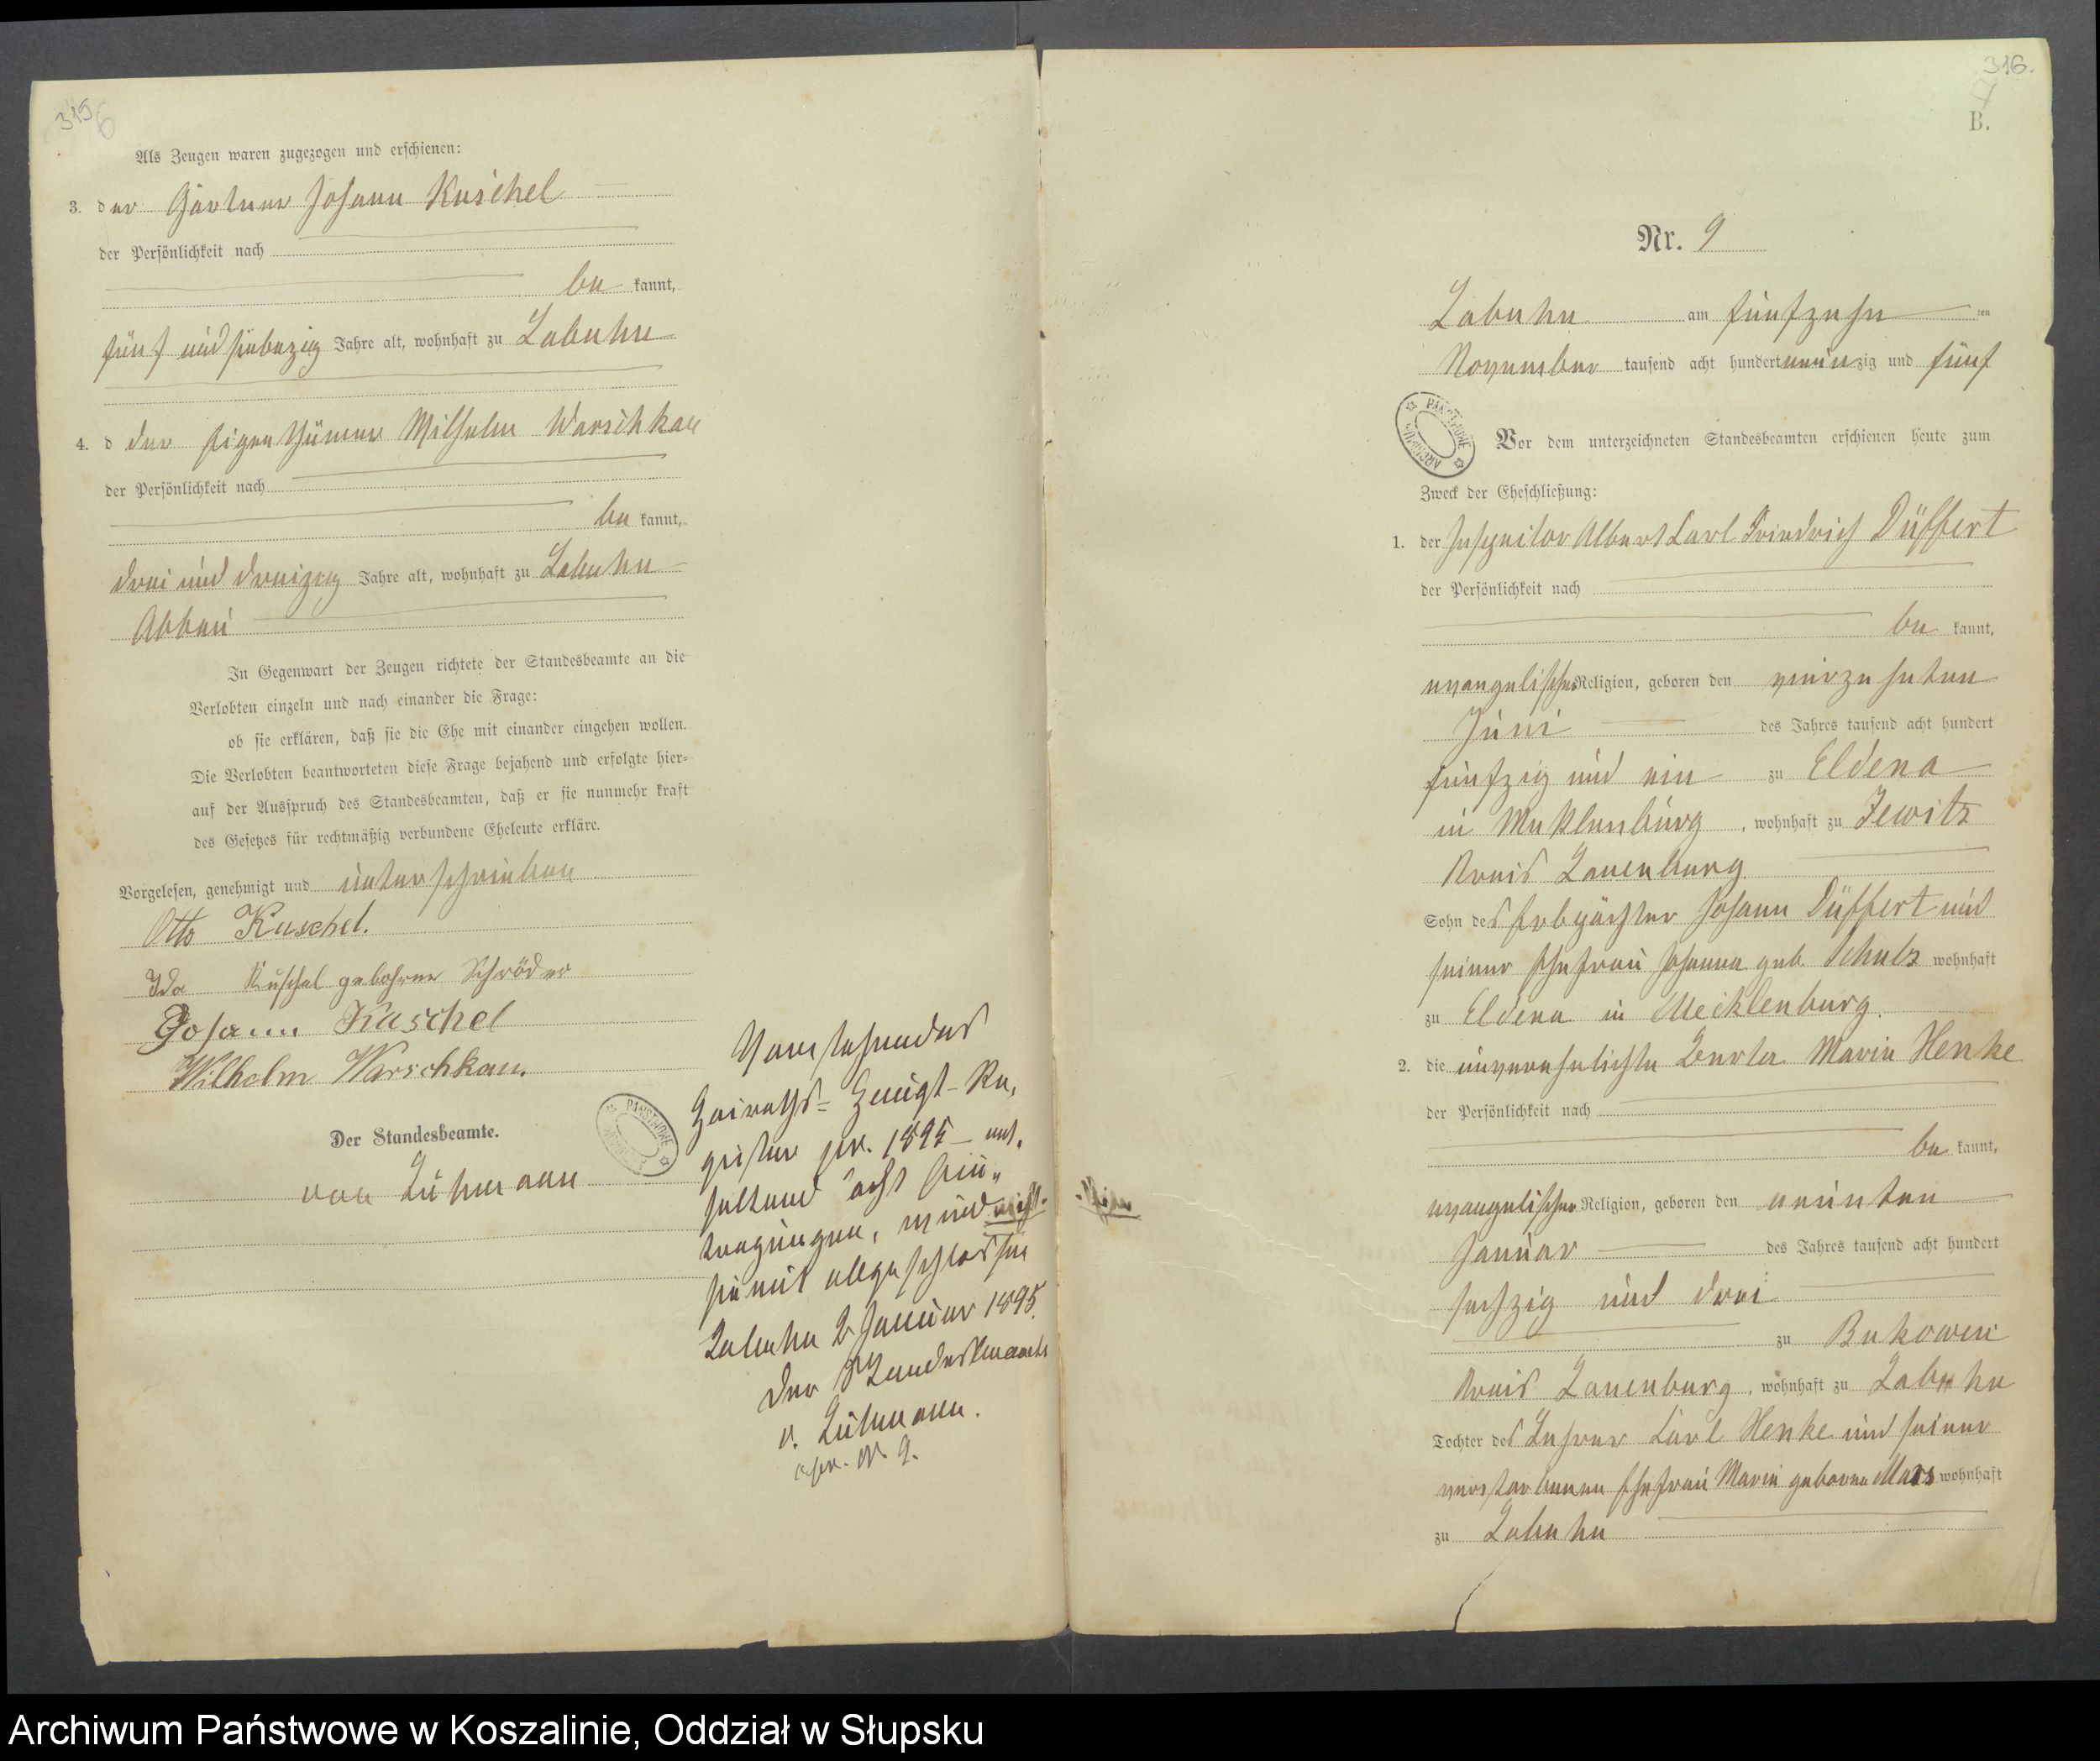 315
6
Als Zeugen waren zugezogen und erschienen:
3. der Gärtner Johann Kuschel
der Persönlichkeit nach
be kannt,
fünf und siebenzig Jahre alt, wohnhaft zu Labuhn
4. d der Eigenthümer Wilhelm Warschkau
der Persönlichkeit nach
be kannt,
drei und dreizig Jahre alt, wohnhaft zu Labuhn
Abbau
In Gegenwart der Zeugen richtete der Standesbeamte an die
Verlobten einzeln und nach einander die Frage:
ob sie erklären, daß sie die Ehe mit einander eingehen wollen.
Die Verlobten beantworteten diese Frage bejahend und erfolgte hier=
auf der Ausspruch des Standesbeamten, daß er sie nunmehr kraft
des Gesetzes für rechtmäßig verbundene Eheleute erkläre.
Vorgelesen, genehmigt und unterschrieben
Otto Kuschel.
Ida Kuschel geborene Schröder
Johann Kuschel
Wilhelm Warschkau.
Der Standesbeamte.
von Lühmann
Vorstehendes
Heiraths= Haupt-Re,
gister pr. 1895 ent,
haltend acht Ein„
tragungen, wird
hiemit abgeschlossen
Labuhn 2 Januar 1895.
Der Standesbeamte
v. Lühmann.
cfr. N. 9.
316.
B.
Nr. 9
Labuhn am fünfzehn ten
November tausend acht hundert neunzig und fünf
Vor dem unterzeichneten Standesbeamten erschienen heute zum
Zweck der Eheschließung:
1. der Inspector Albert Carl Friedrich Düffert
der Persönlichkeit nach
be kannt,
evangelischer Religion, geboren den vierzehnten
Juni des Jahres tausend acht hundert
fünfzig und ein zu Eldena
in Meklenburg, wohnhaft zu Jewitz
Kreis Lauenburg
Sohn des Erbpächter Johann Düffert und
seiner Ehefrau Johanna geb. Schulz wohnhaft
zu Eldena in Mecklenburg.
2. die unverehelichte Berta Marie Henke
der Persönlichkeit nach
be kannt,
evangelischer Religion, geboren den neunten
Januar des Jahres tausend acht hundert
sechzig und drei
zu Bukowin
Kreis Lauenburg, wohnhaft zu Labuhn
Tochter des Lehrer Carl Henke und seiner
verstorbenen Ehefrau Marie geborene wohnhaft
zu Labuhn
PAŃSTWOWE ARCHIWUM
Archiwum Państwowe w Koszalinie, Oddział w Słupsku